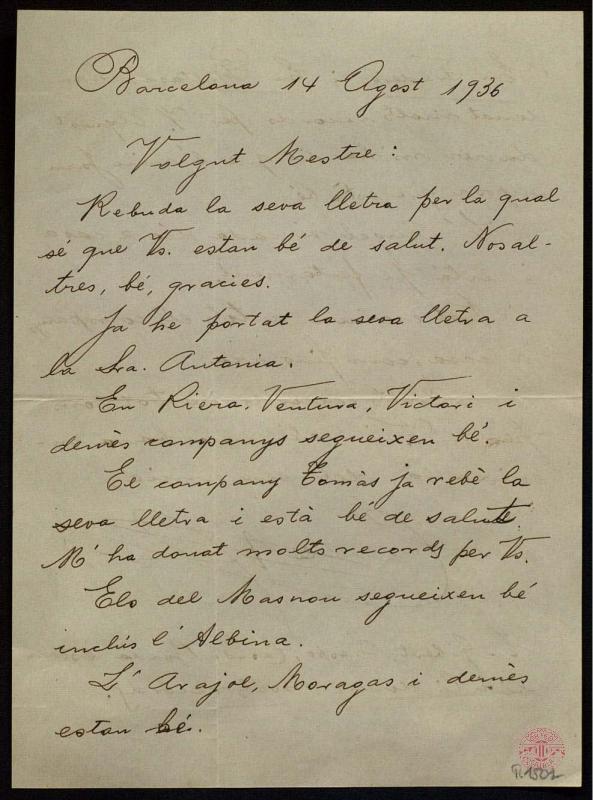 Barcelona 14 Agost 1936
Volgut Mestre:
Rebuda la seva lletra per la qual
sé que Vs. estan bé de salut. Nosal-
tres, bé, gracies.
Ja he portat la seva lletra a
la Sra. Antonia.
En Riera, Ventura, Victori i
demès companys segueixen bé.
El company Tomàs ja rebè la
seva lletra i està bé de salut.
M'ha donat molts records per Vs.
Els del Masnou segueixen bé
inclús l'Albina.
L'Arajol, Moragas i demès
estan bé.